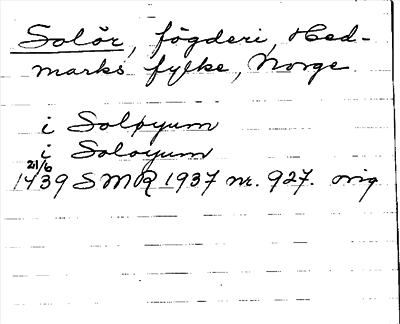 Solör, fögderi, Hed-
marks fylke, Norge
i Soløyum
i Soloyum
21/6
1439 SMR 1937 nr. 927. orig